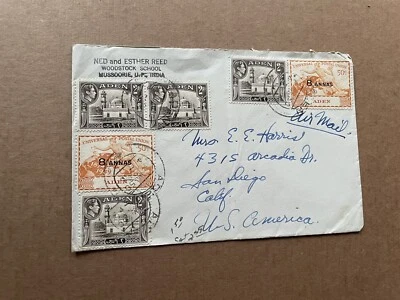 NED and ESTHER REED
WOODSTOCK SCHOOL
MUSSOORIE, U.P., INDIA
ADEN
ADEN
ADEN
UNIVERSAL POSTAL UNION
8 ANNAS
ADEN
UNIVERSAL POSTAL UNION
8 ANNAS
ADEN
ADEN
Air Mail
Mrs. E. E. Harris
4315 Arcadia Dr.
San Diego
Calif.
U.S. America